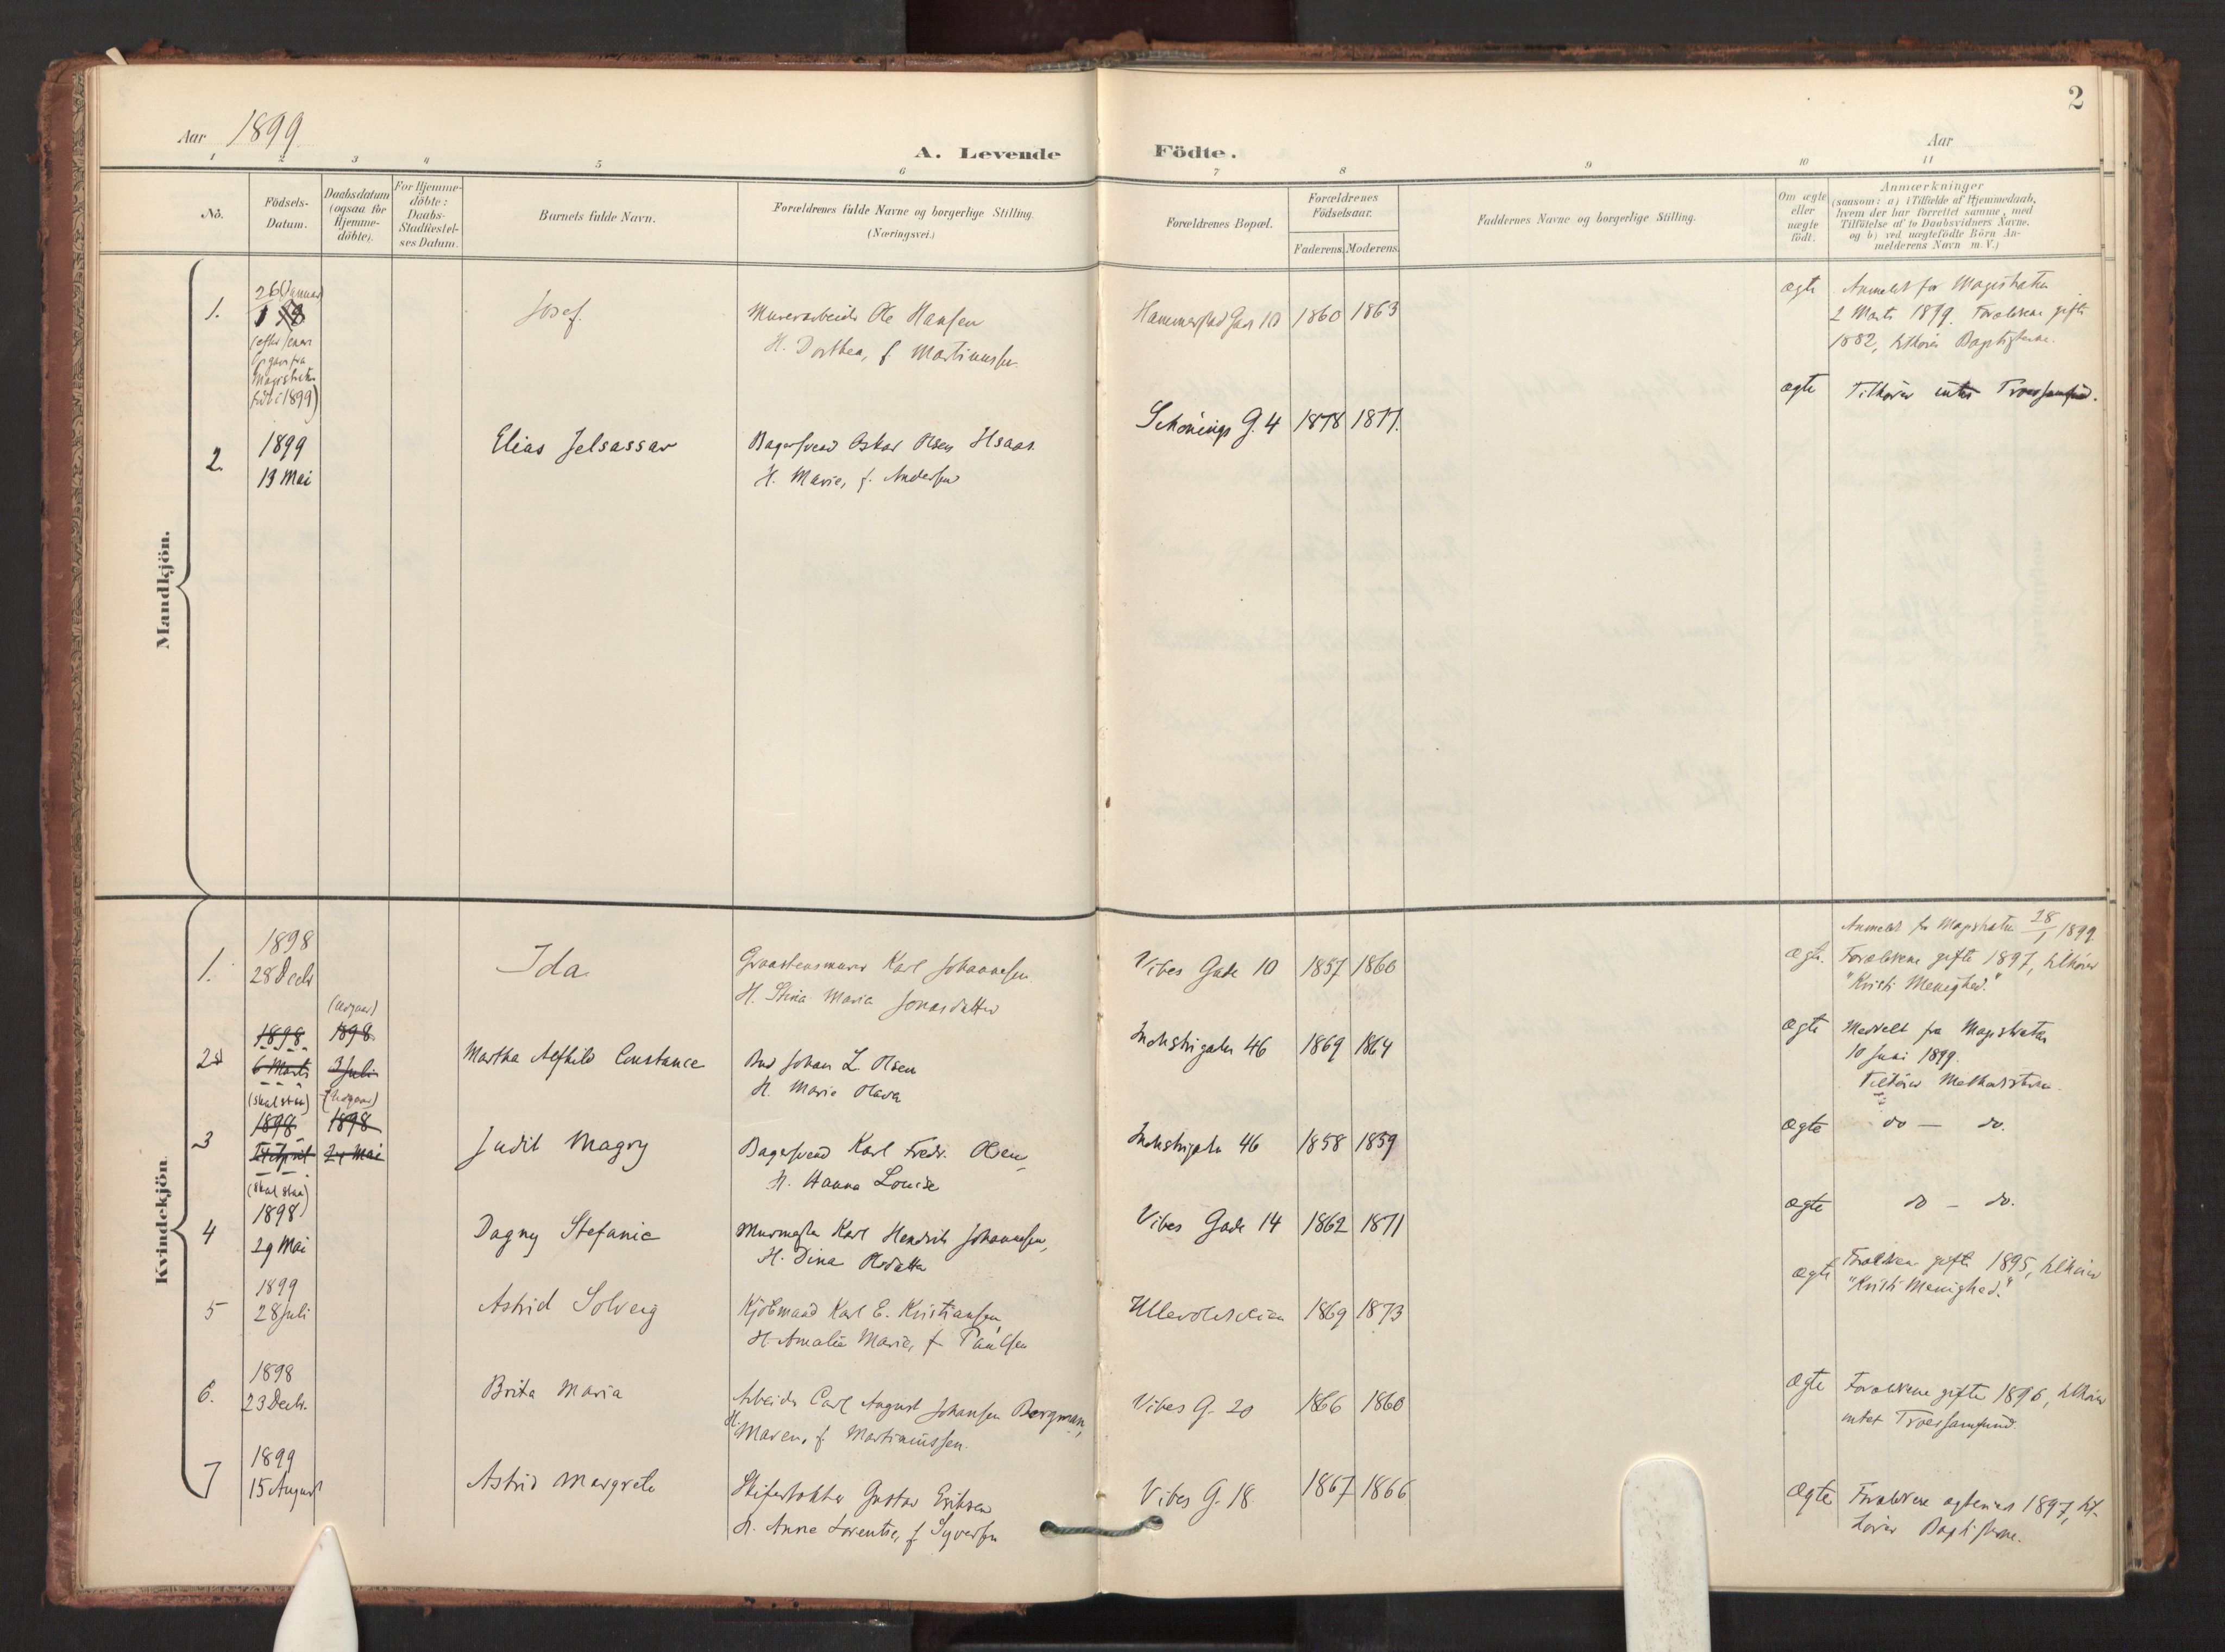 2
Aar 1899
Aar
A. Levende Födte.
1 2 3 4 5 6 7 8 9 10 11
No.
Födsels-
Datum.
Daabsdatum
(ogsaa for
Hjemme-
döbte).
For Hjemme-
döbte:
Daabs-
Stadfæstel-
ses Datum.
Barnets fulde Navn.
Forældrenes fulde Navne og borgerlige Stilling.
(Næringsvei.)
Forældrenes Bopæl.
Forældrenes
Födselsaar.
Faderens. Moderens.
Faddernes Navne og borgerlige Stilling.
Om ægte
eller
uægte
födt.
Anmærkninger
(saasom: a) i Tilfælde af Hjemmedaab,
hvem der har forrettet samme, med
Tilföielse af to Daabsvidners Navne.
og b) ved uægtefödte Börn An-
melderens Navn m. V.)
Mandkjön.
1.
26 Januar
(efter senere
Opgave fra
Magistraten
født i 1899)
Josef.
Murerarbeider Ole Hansen
H. Dorthea, f. Martinussen
Hammerstad Gade 10 1860 1863
ægte
Anmeldt for Magistraten
2 Marts 1899. Forældrene gifte
1882, tilhører Baptisterne.
2.
1899
13 Mai
Elias Jelsassar
Bagersvend Oskar Olsen Hsaas.
H. Marie, f. Andersen
Schönings G. 4 1878 1877.
ægte
Tilhører intet Troessamfund.
Kvindekjön.
1.
1898
28 Decbr
Ida
Graastensmurer Karl Johannesen.
H. Stina Maria Jonasdatter
Vibes Gade 10 1857 1860
ægte.
Anmeldt for Magistraten 28/1 1899.
Forældrene gifte 1897, tilhører
"Kristi Menighed."
2
1898
6 Marts
(skal staa)
(udgaar)
1898
3 Juli
Martha Alfhild Constance
Bud Johan L. Olsen
H. Marie Olava
Industrigaden 46 1869 1864
ægte
Meddelt fra Magistraten
10 Juni 1899.
Tilhører Methodisterne.
3
1898
April
(skal staa)
(Udgaar)
1898
24 Mai
Judit Magny
Bagersvend Karl Fredr. Olsen,
H. Hanna Louise
Industrigaden 46 1858 1859
ægte
do — do.
4
1898
29 Mai
Dagny Stefanie
Murmester Karl Hendrik Johannesen,
H. Dina Olsdatter
Vibes Gade 14 1862 1871
ægte
do — do.
5
1899
28 Juli
Astrid Solveig
Kjöbmand Karl E. Kristiansen,
H. Amalie Marie, f. Paulsen
Ullevoldsveien 1869 1873
ægte
Forældrene gifte 1895, tilhører
"Kristi Menighed."
6.
1898
23 Decbr.
Brita Maria
Arbeider Carl August Johansen Bergman,
H. Maren, f. Martiniussen.
Vibes G. 20 1866 1860
ægte
Forældrene gifte 1896, tilhører
intet Troessamfund.
7
1899
15 August
Astrid Margrete
Skifertækker Gustav Eriksen
H. Anne Lorentse, f. Syversen
Vibes G. 18. 1867 1866
ægte
Forældrene ægteviet 1897, til-
hører Baptisterne.